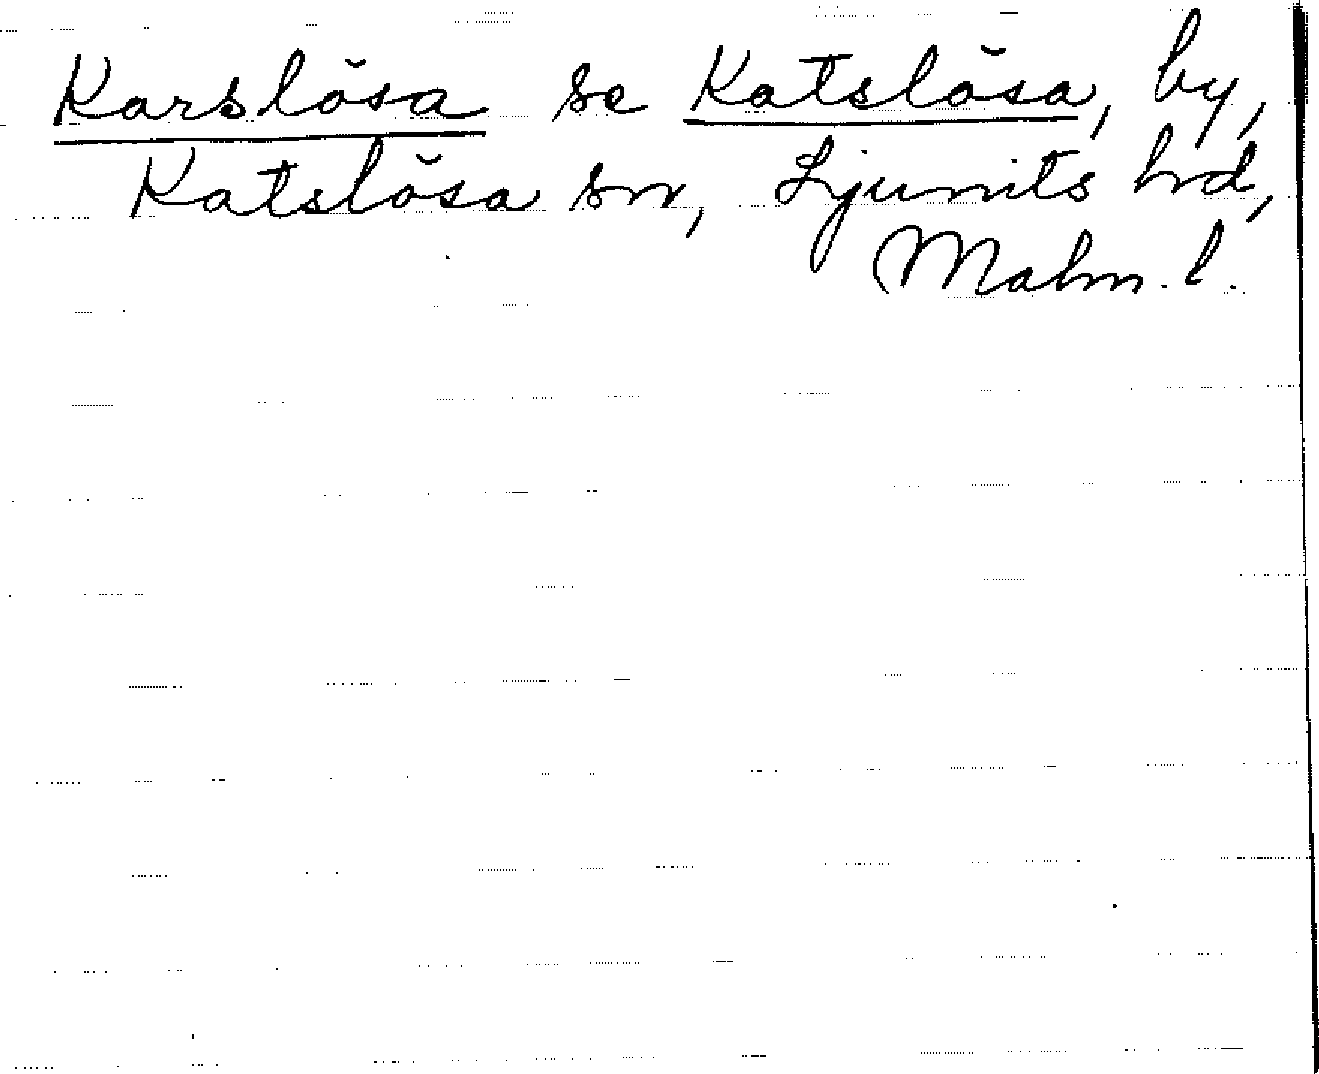 Karslösa se Katslösa, by,
Katslösa sn, Ljunits hd,
Malm. l.